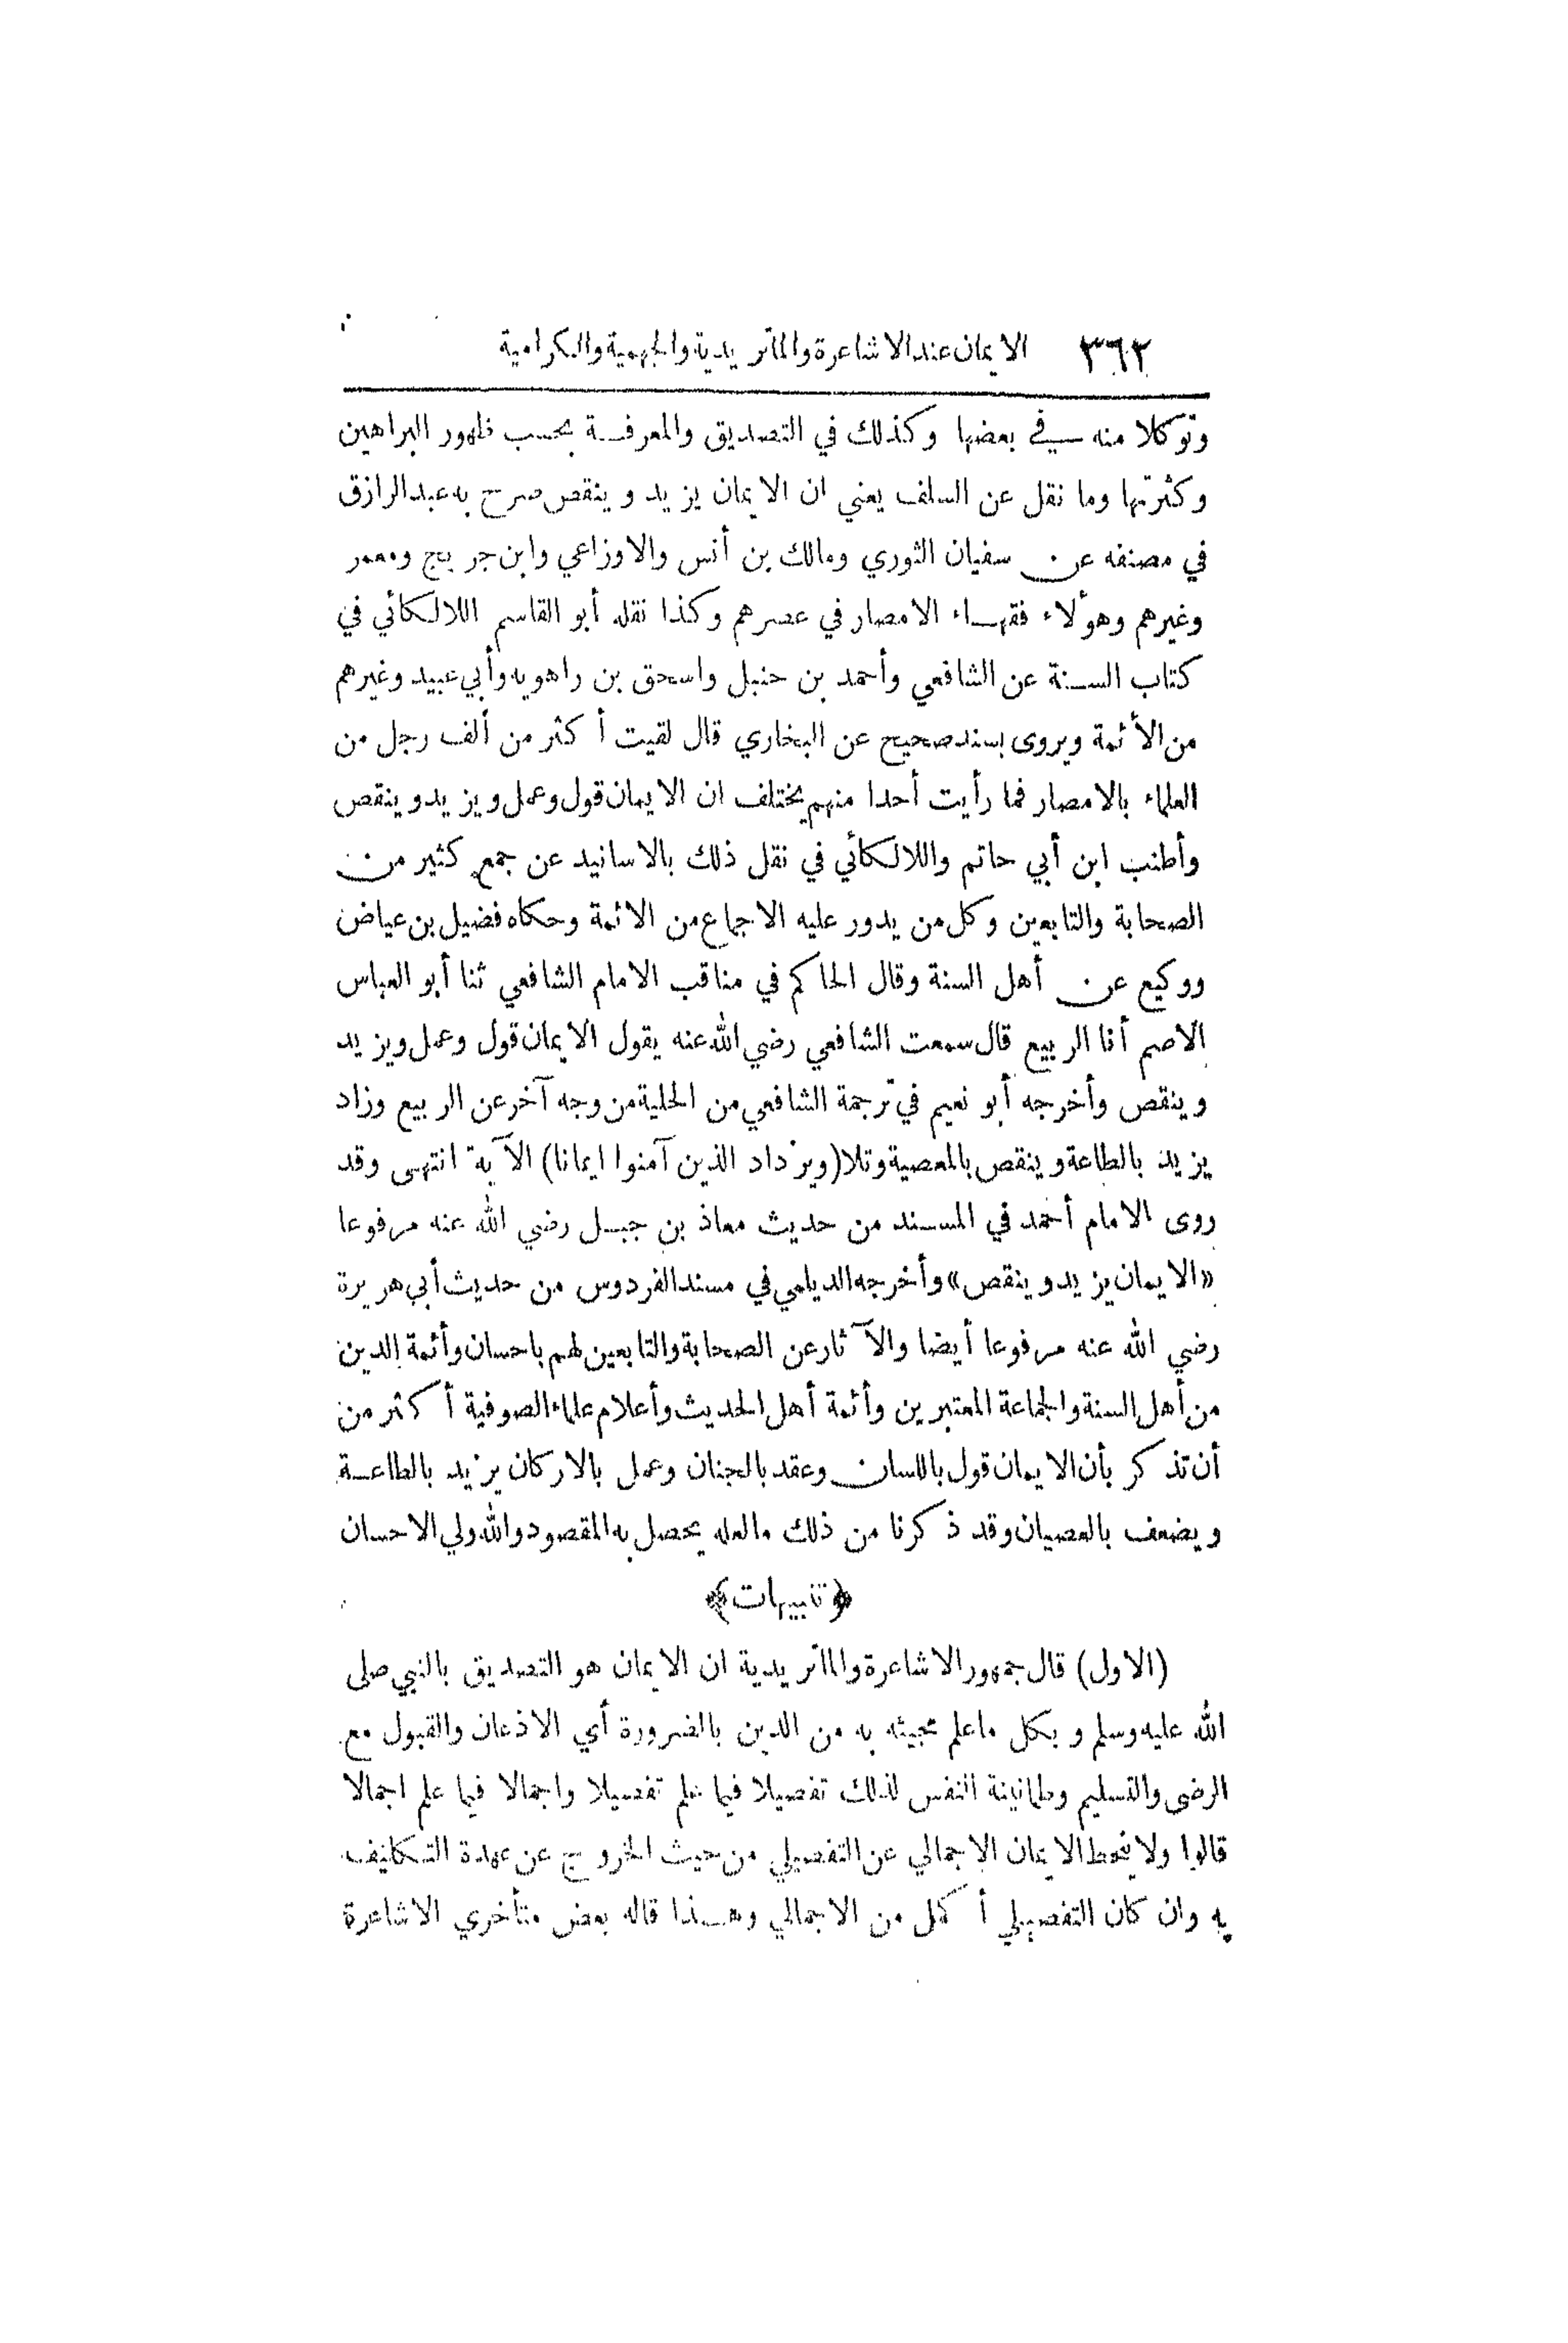 ٣٦٢ الايمان عند الاشاعرة والماتريدية والجهمية والكرامية
وتوكلا منه في بعضها وكذلك في التصديق والمعرفة بحسب ظهور البراهين
وكثرتها وما نقل عن السلف يعني ان الايمان يزيد وينقص صرح به عبد الرازق
في مصنفه عن سفيان الثوري ومالك بن أنس والاوزاعي وابن جريج ومعمر
وغيرهم وهؤلاء فقهاء الامصار في عصرهم وكذا نقله أبو القاسم اللالكائي في
كتاب السنة عن الشافعي وأحمد بن حنبل واسحق بن راهويه وأبي عبيد وغيرهم
من الأئمة ويروى بسند صحيح عن البخاري قال لقيت أكثر من ألف رجل من
العلماء بالامصار فما رأيت أحدا منهم يختلف ان الايمان قول وعمل ويزيد وينقص
وأطنب ابن أبي حاتم واللالكائي في نقل ذلك بالاسانيد عن جمع كثير من
الصحابة والتابعين وكل من يدور عليه الاجماع من الائمة وحكاه فضيل بن عياض
ووكيع عن أهل السنة وقال الحاكم في مناقب الامام الشافعي ثنا أبو العباس
الاصم أنا الربيع قال سمعت الشافعي رضي الله عنه يقول الايمان قول وعمل ويزيد
وينقص وأخرجه أبو نعيم في ترجمة الشافعي من الحلية من وجه آخر عن الربيع وزاد
يزيد بالطاعة وينقص بالمعصية وتلا (ويزداد الذين آمنوا ايمانا) الآية انتهى وقد
روى الامام أحمد في المسند من حديث معاذ بن جبل رضي الله عنه مرفوعا
«الايمان يزيد وينقص» وأخرجه الديلمي في مسند الفردوس من حديث أبي هريرة
رضي الله عنه مرفوعا أيضا والآثار عن الصحابة والتابعين لهم باحسان وأئمة الدين
من أهل السنة والجماعة المعتبرين وأئمة أهل الحديث وأعلام علماء الصوفية أكثر من
أن تذكر بأن الايمان قول باللسان وعقد بالجنان وعمل بالاركان يزيد بالطاعة
ويضعف بالعصيان وقد ذكرنا من ذلك ما لعله يحصل به المقصود والله ولي الاحسان
﴿تنبيهات﴾
(الاول) قال جمهور الاشاعرة والماتريدية ان الايمان هو التصديق بالنبي صلى
الله عليه وسلم وبكل ما علم مجيئه به من الدين بالضرورة أي الاذعان والقبول مع
الرضى والتسليم وطمانينة النفس لذلك تفصيلا فيما علم تفصيلا واجمالا فيما علم اجمالا
قالوا ولا ينحط الايمان الاجمالي عن التفصيلي من حيث الخروج عن عهدة التكليف
به وان كان التفصيلي أكمل من الاجمالي وهذا قاله بعض متأخري الاشاعرة